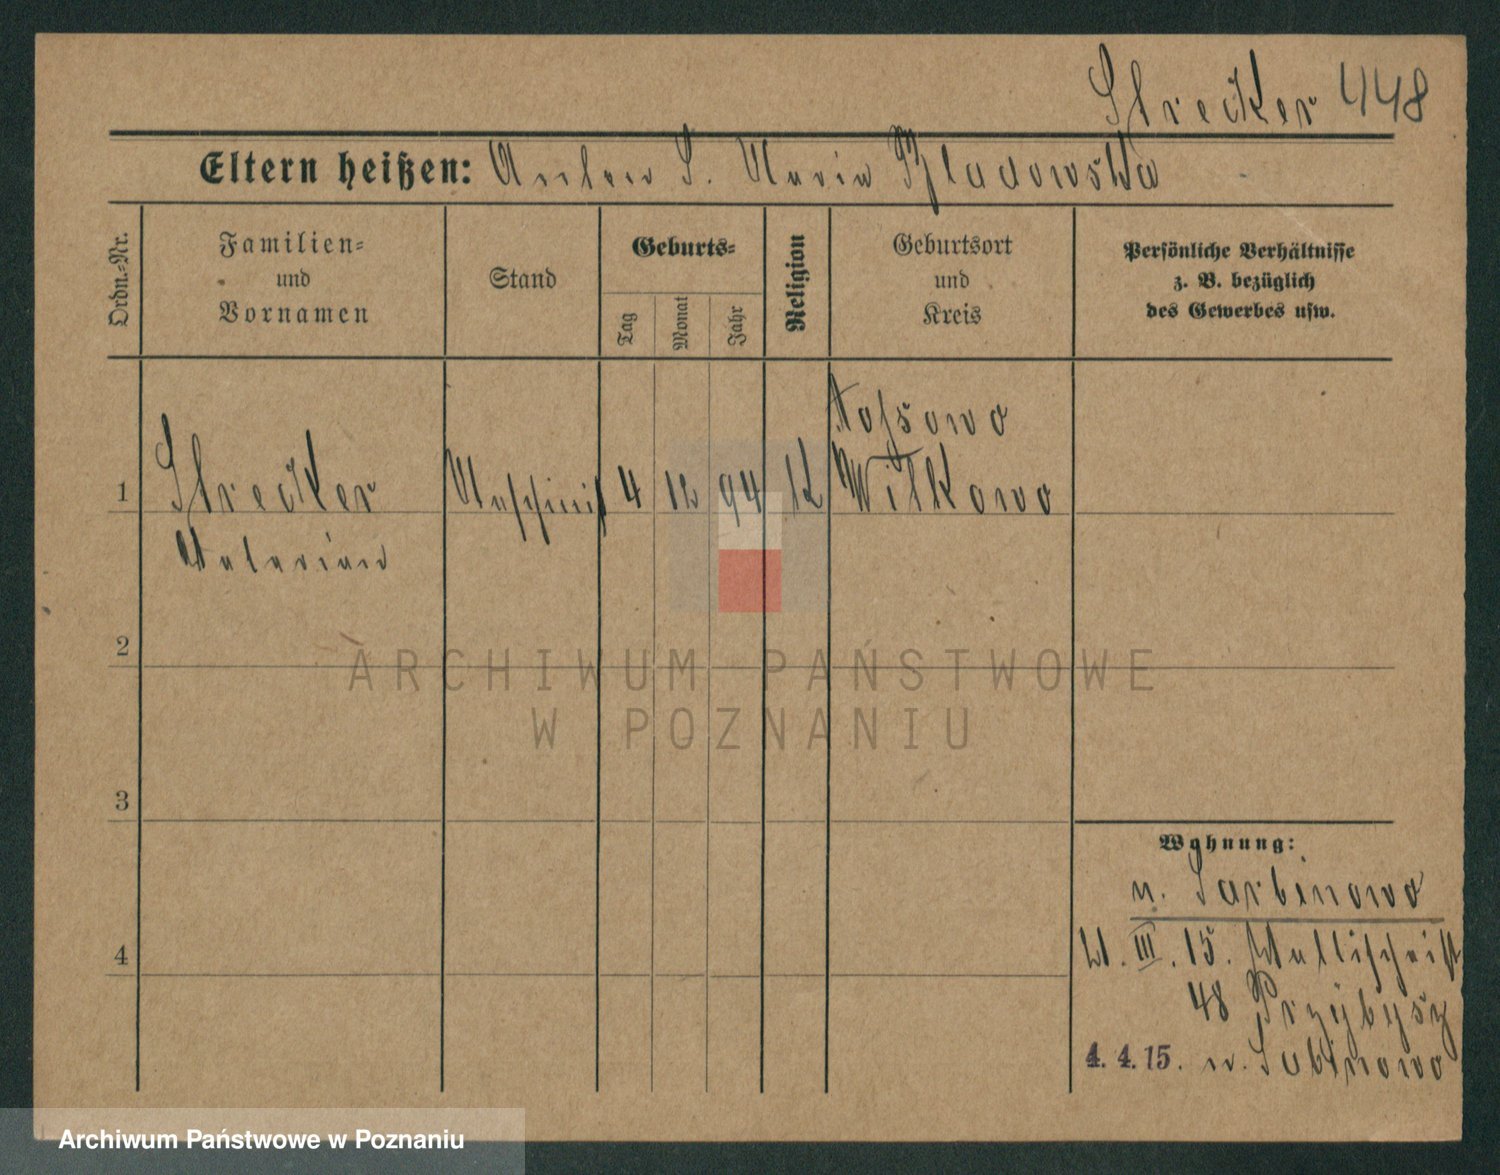 Strecker 448
Eltern heißen: Anton S. Maria Rzladowska
Ordn.-Nr.
Familien- und Vornamen
Stand
Geburts-
Tag
Monat
Jahr
Religion
Geburtsort und Kreis
Persönliche Verhältnisse
z. B. bezüglich
des Gewerbes usw.
1
Strecker
4
12
94
K
Wilkowo
Valerian
2
ARCHIWUM PAŃSTWOWE
W POZNANIU
3
Wohnung:
n. Sarbinowo
4
III. 15. Wallischei
48 Przybysz
4. 4. 15. n. Sabinowo
Archiwum Państwowe w Poznaniu